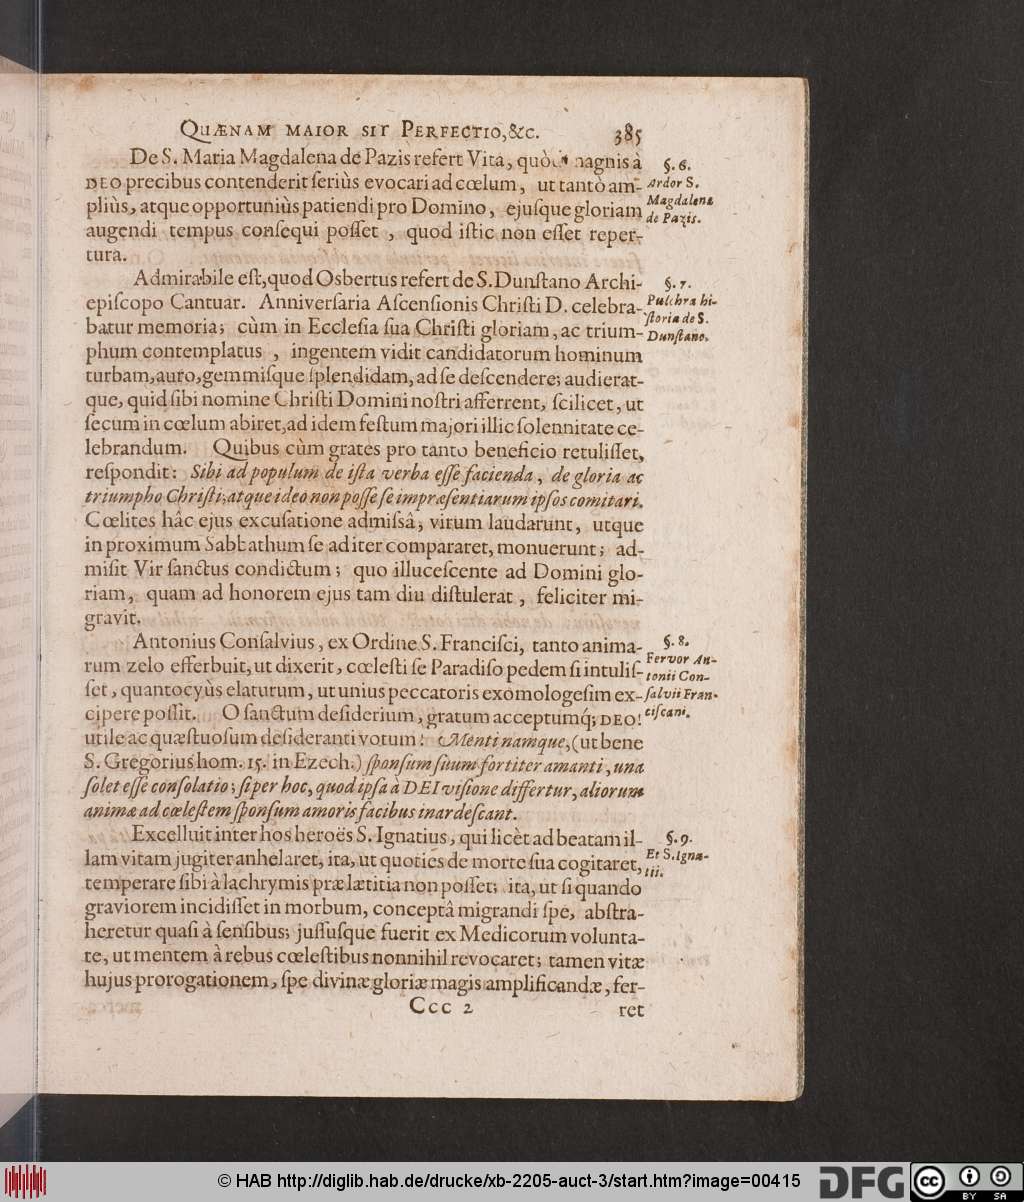 QUÆNAM MAIOR SIT PERFECTIO,&C. 385
De S. Maria Magdalena de Pazis refert Vita, quòd magnis à
DEO precibus contenderit ſeriùs evocari ad cœlum, ut tantò am-
pliùs, atque opportuniùs patiendi pro Domino, ejuſque gloriam
augendi tempus conſequi poſſet, quod iſtic non eſſet reper-
tura.
§. 6.
Ardor S.
Magdalenæ
de Pazis.
Admirabile eſt, quod Osbertus refert de S. Dunſtano Archi-
epiſcopo Cantuar. Anniverſaria Aſcenſionis Chriſti D. celebra-
batur memoria; cùm in Eccleſia ſua Chriſti gloriam, ac trium-
phum contemplatus, ingentem vidit candidatorum hominum
turbam, auro, gemmiſque ſplendidam, ad ſe deſcendere; audierat-
que, quid ſibi nomine Chriſti Domini noſtri afferrent, ſcilicet, ut
ſecum in cœlum abiret, ad idem feſtum majori illic ſolennitate ce-
lebrandum. Quibus cùm grates pro tanto beneficio retuliſſet,
reſpondit: Sibi ad populum de iſta verba eſſe facienda, de gloria ac
triumpho Chriſti; atque ideo non poſſe ſe impræſentiarum ipſos comitari.
Cœlites hâc ejus excuſatione admiſsâ, virum laudarunt, utque
in proximum Sabbathum ſe ad iter compararet, monuerunt; ad-
miſit Vir ſanctus condictum; quo illuceſcente ad Domini glo-
riam, quam ad honorem ejus tam diu diſtulerat, feliciter mi-
gravit.
§. 7.
Pulchra hi-
ſtoria de S.
Dunſtano.
Antonius Conſalvius, ex Ordine S. Franciſci, tanto anima-
rum zelo efferbuit, ut dixerit, cœleſti ſe Paradiſo pedem ſi intuliſ-
ſet, quantocyùs elaturum, ut unius peccatoris exomologeſim ex-
cipere poſſit. O ſanctum deſiderium, gratum acceptumq́; DEO!
utile ac quæſtuoſum deſideranti votum! Menti namque, (ut bene
S. Gregorius hom. 15. in Ezech.) ſponſum ſuum fortiter amanti, una
ſolet eſſe conſolatio; ſi per hoc, quod ipſa à DEI viſione differtur, aliorum
animæ ad cœleſtem ſponſum amoris facibus inardeſcant.
§. 8.
Fervor An-
tonii Con-
ſalvii Fran-
ciſcani.
Excelluit inter hos heroës S. Ignatius, qui licèt ad beatam il-
lam vitam jugiter anhelaret, ita, ut quoties de morte ſua cogitaret,
temperare ſibi à lachrymis præ lætitia non poſſet; ita, ut ſi quando
graviorem incidiſſet in morbum, conceptâ migrandi ſpe, abſtra-
heretur quaſi à ſenſibus; juſſuſque fuerit ex Medicorum volunta-
te, ut mentem à rebus cœleſtibus nonnihil revocaret; tamen vitæ
hujus prorogationem, ſpe divinæ gloriæ magis amplificandæ, fer-
§. 9.
Et S. Igna-
tii.
Ccc 2 ret
© HAB http://diglib.hab.de/drucke/xb-2205-auct-3/start.htm?image=00415
DFG
cc BY SA